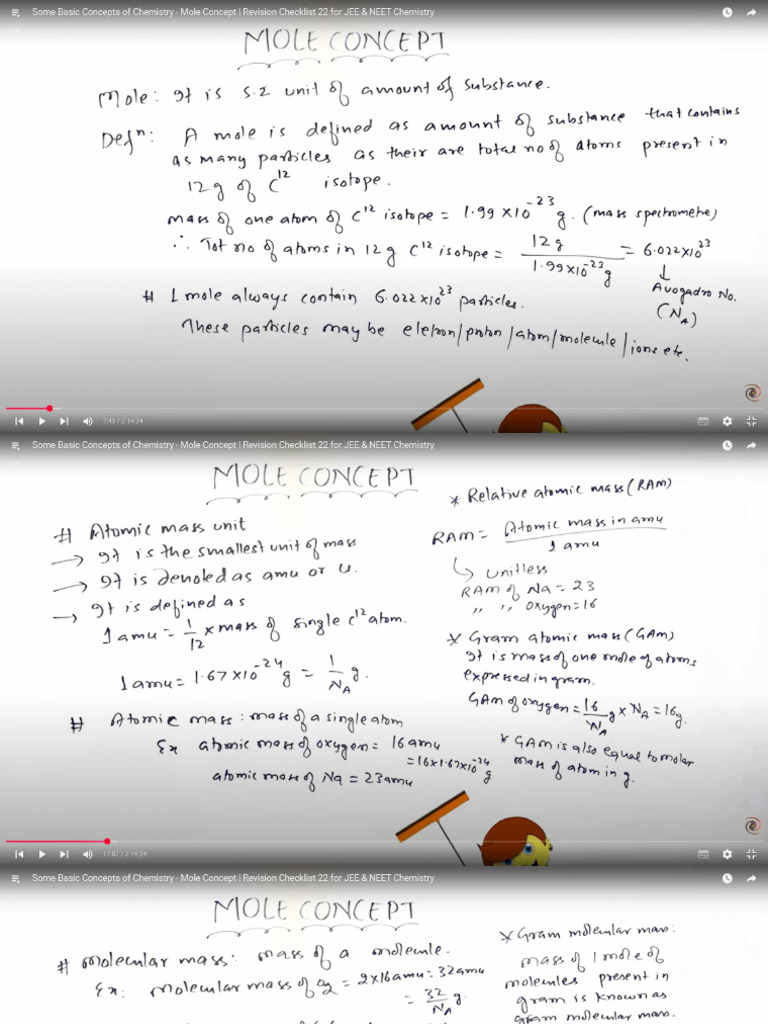 Some Basic Concepts of Chemistry - Mole Concept | Revision Checklist 22 for JEE & NEET Chemistry
MOLE CONCEPT
Mole: It is S.I unit of amount of substance.
Defⁿ: A mole is defined as amount of substance that contains
as many particles as their are total no of atoms present in
12g of C¹² isotope.
mass of one atom of C¹² isotope = 1.99×10⁻²³ g. (mass spectrometre)
∴ Tot no of atoms in 12g C¹² isotope = 12g / 1.99×10⁻²³g = 6.022×10²³
↓
Avogadro No.
(N_A)
# 1 mole always contain 6.022×10²³ particles.
These particles may be eletron/proton/atom/molecule/ions etc.
7:43 / 2:14:24
Some Basic Concepts of Chemistry - Mole Concept | Revision Checklist 22 for JEE & NEET Chemistry
MOLE CONCEPT
# Atomic mass unit
→ It is the smallest unit of mass
→ It is denoted as amu or u.
→ It is defined as
1 amu = 1/12 × mass of single C¹² atom.
1 amu = 1.67×10⁻²⁴ g = 1/N_A g.
# Atomic mass: mass of a single atom
Ex atomic mass of oxygen = 16 amu
= 16×1.67×10⁻²⁴ g
atomic mass of Na = 23 amu
* Relative atomic mass (RAM)
RAM = Atomic mass in amu / 1 amu
↳ unitless
RAM of Na = 23
,, ,, oxygen = 16
* Gram atomic mass (GAM)
It is mass of one mole of atoms
expressed in gram.
GAM of oxygen = 16/N_A g × N_A = 16g.
* GAM is also equal to molar
mass of atom in g.
17:57 / 2:14:24
Some Basic Concepts of Chemistry - Mole Concept | Revision Checklist 22 for JEE & NEET Chemistry
MOLE CONCEPT
# Molecular mass: mass of a molecule.
Ex: Molecular mass of O₂ = 2×16amu = 32amu
= 32/N_A g.
* Gram molecular mass:
mass of 1 mole of
molecules present in
gram is known as
gram molecular mass.